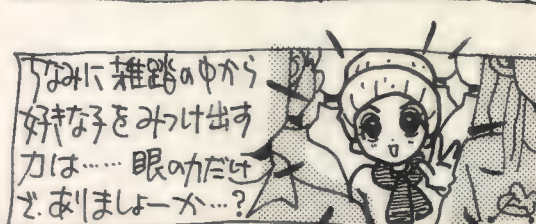 ちなみに雑踏の中から
好きな子をみつけ出す
力は……眼の力だけ
で、ありましょーか…?